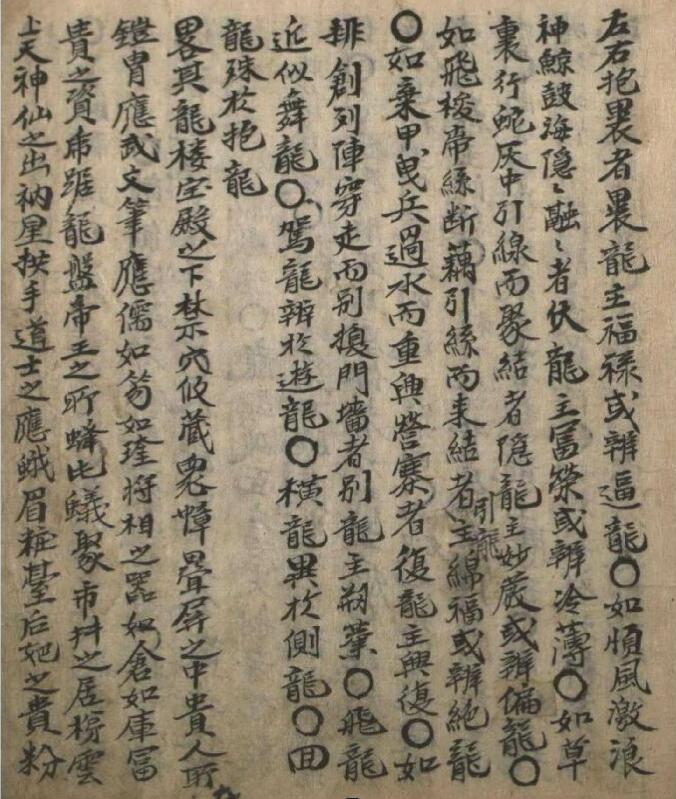 左右抱裹者裹龍主福祿或辨逼龍○如順風激浪
神鯨鼓海隐〻融〻者伏龍主冨榮或辨冷薄○如草
裏行蛇灰中引線而聚結者隐龍主妙嚴或辨偏龍○
如飛梭帝絲断藕引絲而来結者引龍主綿福或辨絶龍
○如棄甲曳兵過水而重興營寨者復龍主興復○如
排創列陣穿走而别換門墻者别龍主刱業○飛龍
近似舞龍○鴛龍辨於遊龍○横龍異於側龍○回
龍殊於抱龍
畧其龍楼宝殿之下禁穴似蔵衆嶂疊屏之中貴人所
鎧冑應武文筆應儒如笏如珪将相之器如倉如庫冨
貴之資虎踞龍盤帝王之所蜂屯蟻聚市井之居拐雲
上天神仙之出衲星拱手道士之應蛾眉粧䑓后妃之貴粉